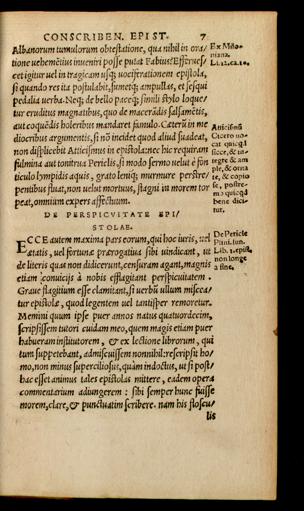 CONSCRIBEN. EPIST. 7
Albanorum tumulorum obtestatione, qua nihil in ora/
tione uehemētius inueniri posse putat Fabius? Efferues/
cet igitur uel in tragicam usq; uociferationem epistola,
si quando res ita postulabit, sumetq; ampullas, et sesqui
pedalia uerba. Neq; de bello paceq; simili stylo loque/
tur eruditus magnatibus, quo de maceradis salsamētis,
aut coquēdis holeribus mandaret famulo. Caterū in me
diocribus argumentis, si nō incidet quod aliud suadeat,
non displicebit Atticismus in epistola: nec hic requiram
fulmina aut tonitrua Periclis, si modo sermo uelut è fon
ticulo limpidis aquis, grato leniq; murmure perstre/
pentibus fluat, non uelut mortuus, stagni in morem tor
peat, omnium expers affectuum.
Ex Miño
niana.
Li.12.ca.10.
Atticismū
Cicero uo-
cat quicqd
sicce, & in-
tegre & am
ple, & orna
te, & copio
se, postre-
mo quicqd
bene dici-
tur.
DE PERSPICVITATE EPI/
STOLAE.
ECCE autem maxima pars eorum, qui hoc iuris, uel
ætatis, uel fortunæ prærogatiua sibi uindicant, ut
de literis quas non didicerunt, censuram agant, magnis
etiam conuicijs à nobis efflagitant perspicuitatem.
Graue flagitium esse clamitant, si uerbū ullum miscea/
tur epistolæ, quod legentem uel tantisper remoretur.
Memini quum ipse puer annos natus quatuordecim,
scripsissem tutori cuidam meo, quem magis etiam puer
habueram institutorem, & ex lectione librorum, qui
tum suppetebant, admiscuissem nonnihil: rescripsit ho/
mo, non minus superciliosus, quàm indoctus, ut si post/
hac esset animus tales epistolas mittere, eadem opera
commentarium adiungerem: sibi semper hunc fuisse
morem, clare, & punctuatim scribere. nam his floscu/
lis
De Pericle
Plini. iun.
Lib. 1. epist.
non longe
a fine.